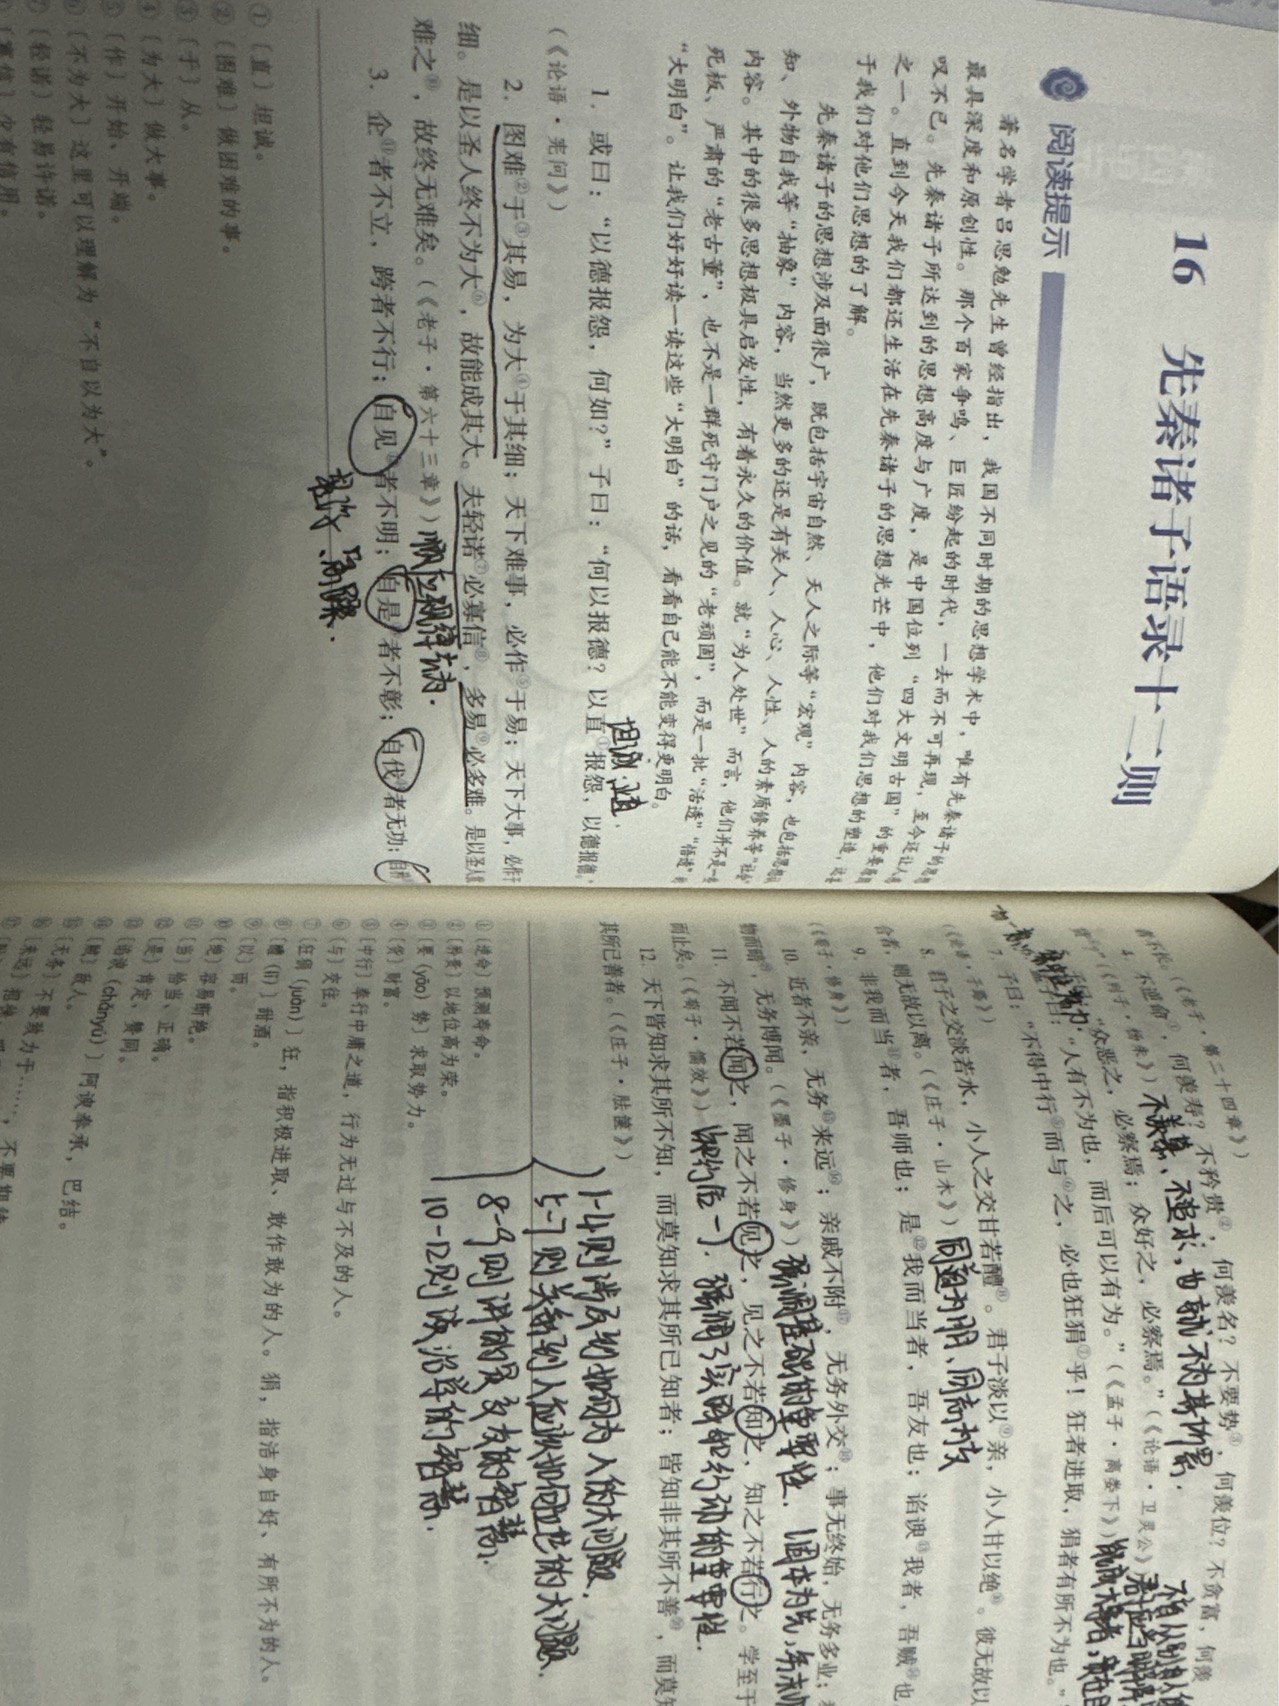 16 先秦诸子语录十二则
阅读提示
著名学者吕思勉先生曾经指出，我国不同时期的思想学术中，唯有先秦诸子的思想
最具深度和原创性。那个百家争鸣、巨匠纷起的时代，一去而不可再现，至今还让人
叹不已。先秦诸子所达到的思想高度与广度，是中国位列“四大文明古国”的重要
之一。直到今天我们都还生活在先秦诸子的思想光芒中，他们对我们思想的塑造，
于我们对他们思想的了解。
先秦诸子的思想涉及面很广，既包括宇宙自然、天人之际等“宏观”内容，也包括
知、外物自我等“抽象”内容，当然更多的还是有关人、人心、人性、人的素质修养等“社会”
内容。其中的很多思想极具启发性，有着永久的价值。就“为人处世”而言，他们并不是一
死板、严肃的“老古董”，也不是一群死守门户之见的“老顽固”，而是一批“活透”“悟透”的
“大明白”。让我们好好读一读这些“大明白”的话，看看自己能不能变得更明白。
1. 或曰：“以德报怨，何如？”子曰：“何以报德？以直①报怨，以德报德。”
坦诚，道
（《论语·宪问》）
2. 图难②于③其易，为大④于其细；天下难事，必作⑤于易；天下大事，必作于
细。是以圣人终不为大⑥，故能成其大。夫轻诺⑦必寡信⑧，多易⑨必多难。是以圣人犹
难之⑩，故终无难矣。（《老子·第六十三章》）顺应规律去为.
3. 企⑪者不立，跨者不行；自见⑫者不明；自是⑬者不彰；自伐⑭者无功；自矜
①［直］坦诚。
②［图难］做困难的事。
③［于］从。
④［为大］做大事。
⑤［作］开始、开端。
⑥［不为大］这里可以理解为“不自以为大”。
⑦［轻诺］轻易许诺。
⑧［寡信］少有信用。
者不长。（《老子·第二十四章》）
4. 不逆命①，何羡寿？不矜贵②，何羡名？不要势③，何羡位？不贪富，何羡
货④？（《列子·杨朱》）不羡慕、不追求，也就不为其所累.
5. 子曰：“众恶之，必察焉；众好之，必察焉。”（《论语·卫灵公》）
“人有不为也，而后可以有为。”（《孟子·离娄下》）
7. 子曰：“不得中行⑤而与⑥之，必也狂狷⑦乎！狂者进取，狷者有所不为也。”
（《论语·子路》）
8. 君子之交淡若水，小人之交甘若醴⑧。君子淡以⑨亲，小人甘以绝⑩。彼无故以
合者，则无故以离。（《庄子·山木》）同道为朋、同志为友
9. 非我而当⑪者，吾师也；是⑫我而当者，吾友也；谄谀⑬我者，吾贼⑭也
（《荀子·修身》）
10. 近者不亲，无务⑮来远⑯；亲戚不附⑰，无务外交⑱；事无终始，无务多业；
物而暗⑲，无务博闻。（《墨子·修身》）强调基础的重要性.
11. 不闻不若闻之，闻之不若见之，见之不若知之，知之不若行之。学至于
而止矣。（《荀子·儒效》）强调了实践和行动的重要性.
12. 天下皆知求其所不知，而莫知求其所已知者；皆知非其所不善⑳，而莫知
其所已善者。（《庄子·胠箧》）
1-4则涉及到如何为人的大问题.
5-7则关系到人应该如何处世的大问题.
8-9则讲的是交友的智慧.
10-12则谈治学的智慧.
①［逆命］预测寿命。
②［矜贵］以地位高为荣。
③［要（yāo）势］求取势力。
④［货］财富。
⑤［中行］奉行中庸之道，行为无过与不及的人。
⑥［与］交往。
⑦［狂狷（juàn）］狂，指积极进取、敢作敢为的人。狷，指洁身自好、有所不为的人。
⑧［醴（lǐ）］甜酒。
⑨［以］而。
⑩［绝］容易断绝。
⑪［当］恰当、正确。
⑫［是］肯定、赞同。
⑬［谄谀（chǎnyú）］阿谀奉承，巴结。
⑭［贼］敌人。
⑮［无务］不要致力于……，不要期待